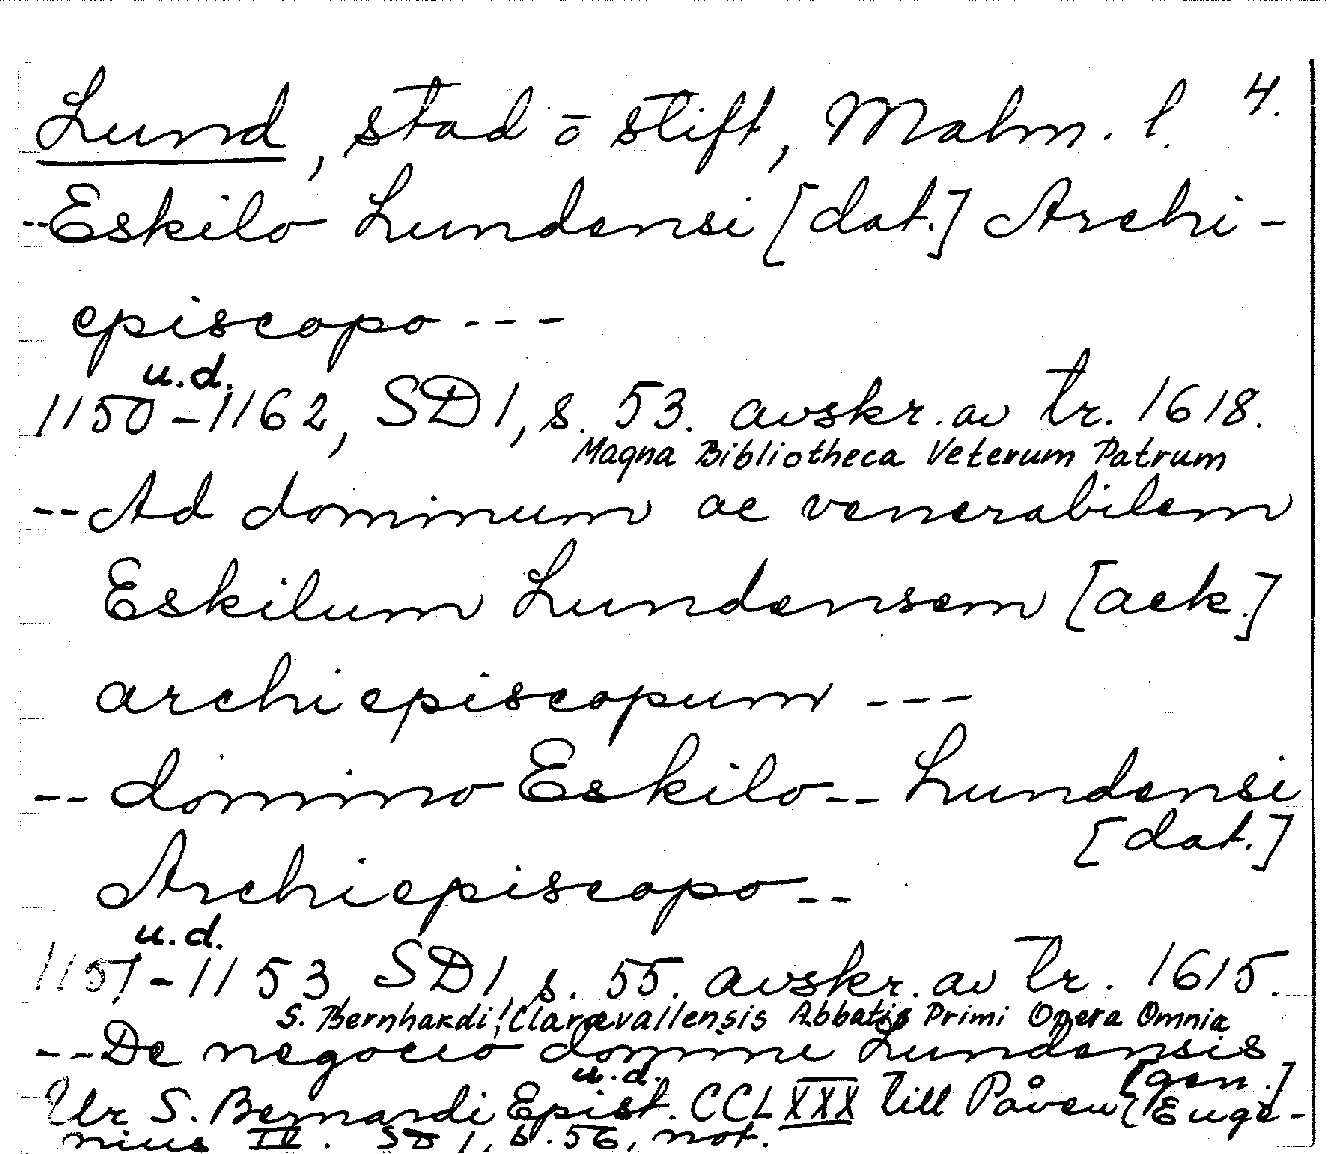 Lund, stad o stift, Malm. l. 4.
--Eskilo Lundensi [dat.] Archi-
episcopo ---
u.d.
1150-1162, SD 1, s. 53. avskr. av tr. 1618.
Magna Bibliotheca Veterum Patrum
--Ad dominum ac venerabilem
Eskilum Lundensem [ack.]
archiepiscopum ---
-- domino Eskilo -- Lundensi
[dat.]
Archiepiscopo --
u.d.
1151-1153 SD 1, s. 55. avskr. av tr. 1615.
S. Bernhardi Clarævallensis Abbatis Primi Opera Omnia
--De negocio domini Lundensis
[gen.]
u.d.
Ur S. Bernardi Epist. CCLXXX till Påven (Euge-
nius III. SD 1, s. 56, not.